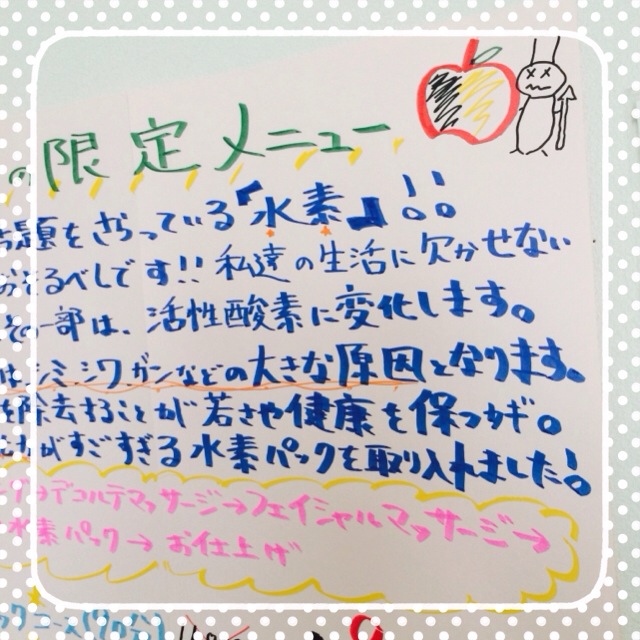 の限定メニュー
話題をさらっている『水素』!!
おそるべしです!! 私達の生活に欠かせない
その一部は、活性酸素に変化します。
はシミ シワ ガンなどの大きな原因となります。
を除去することが若さや健康を保つカギ。
がすごすぎる水素パックを取り入れました!
→デコルテマッサージ→フェイシャルマッサージ→
水素パック→お仕上げ
ックコース(70分)